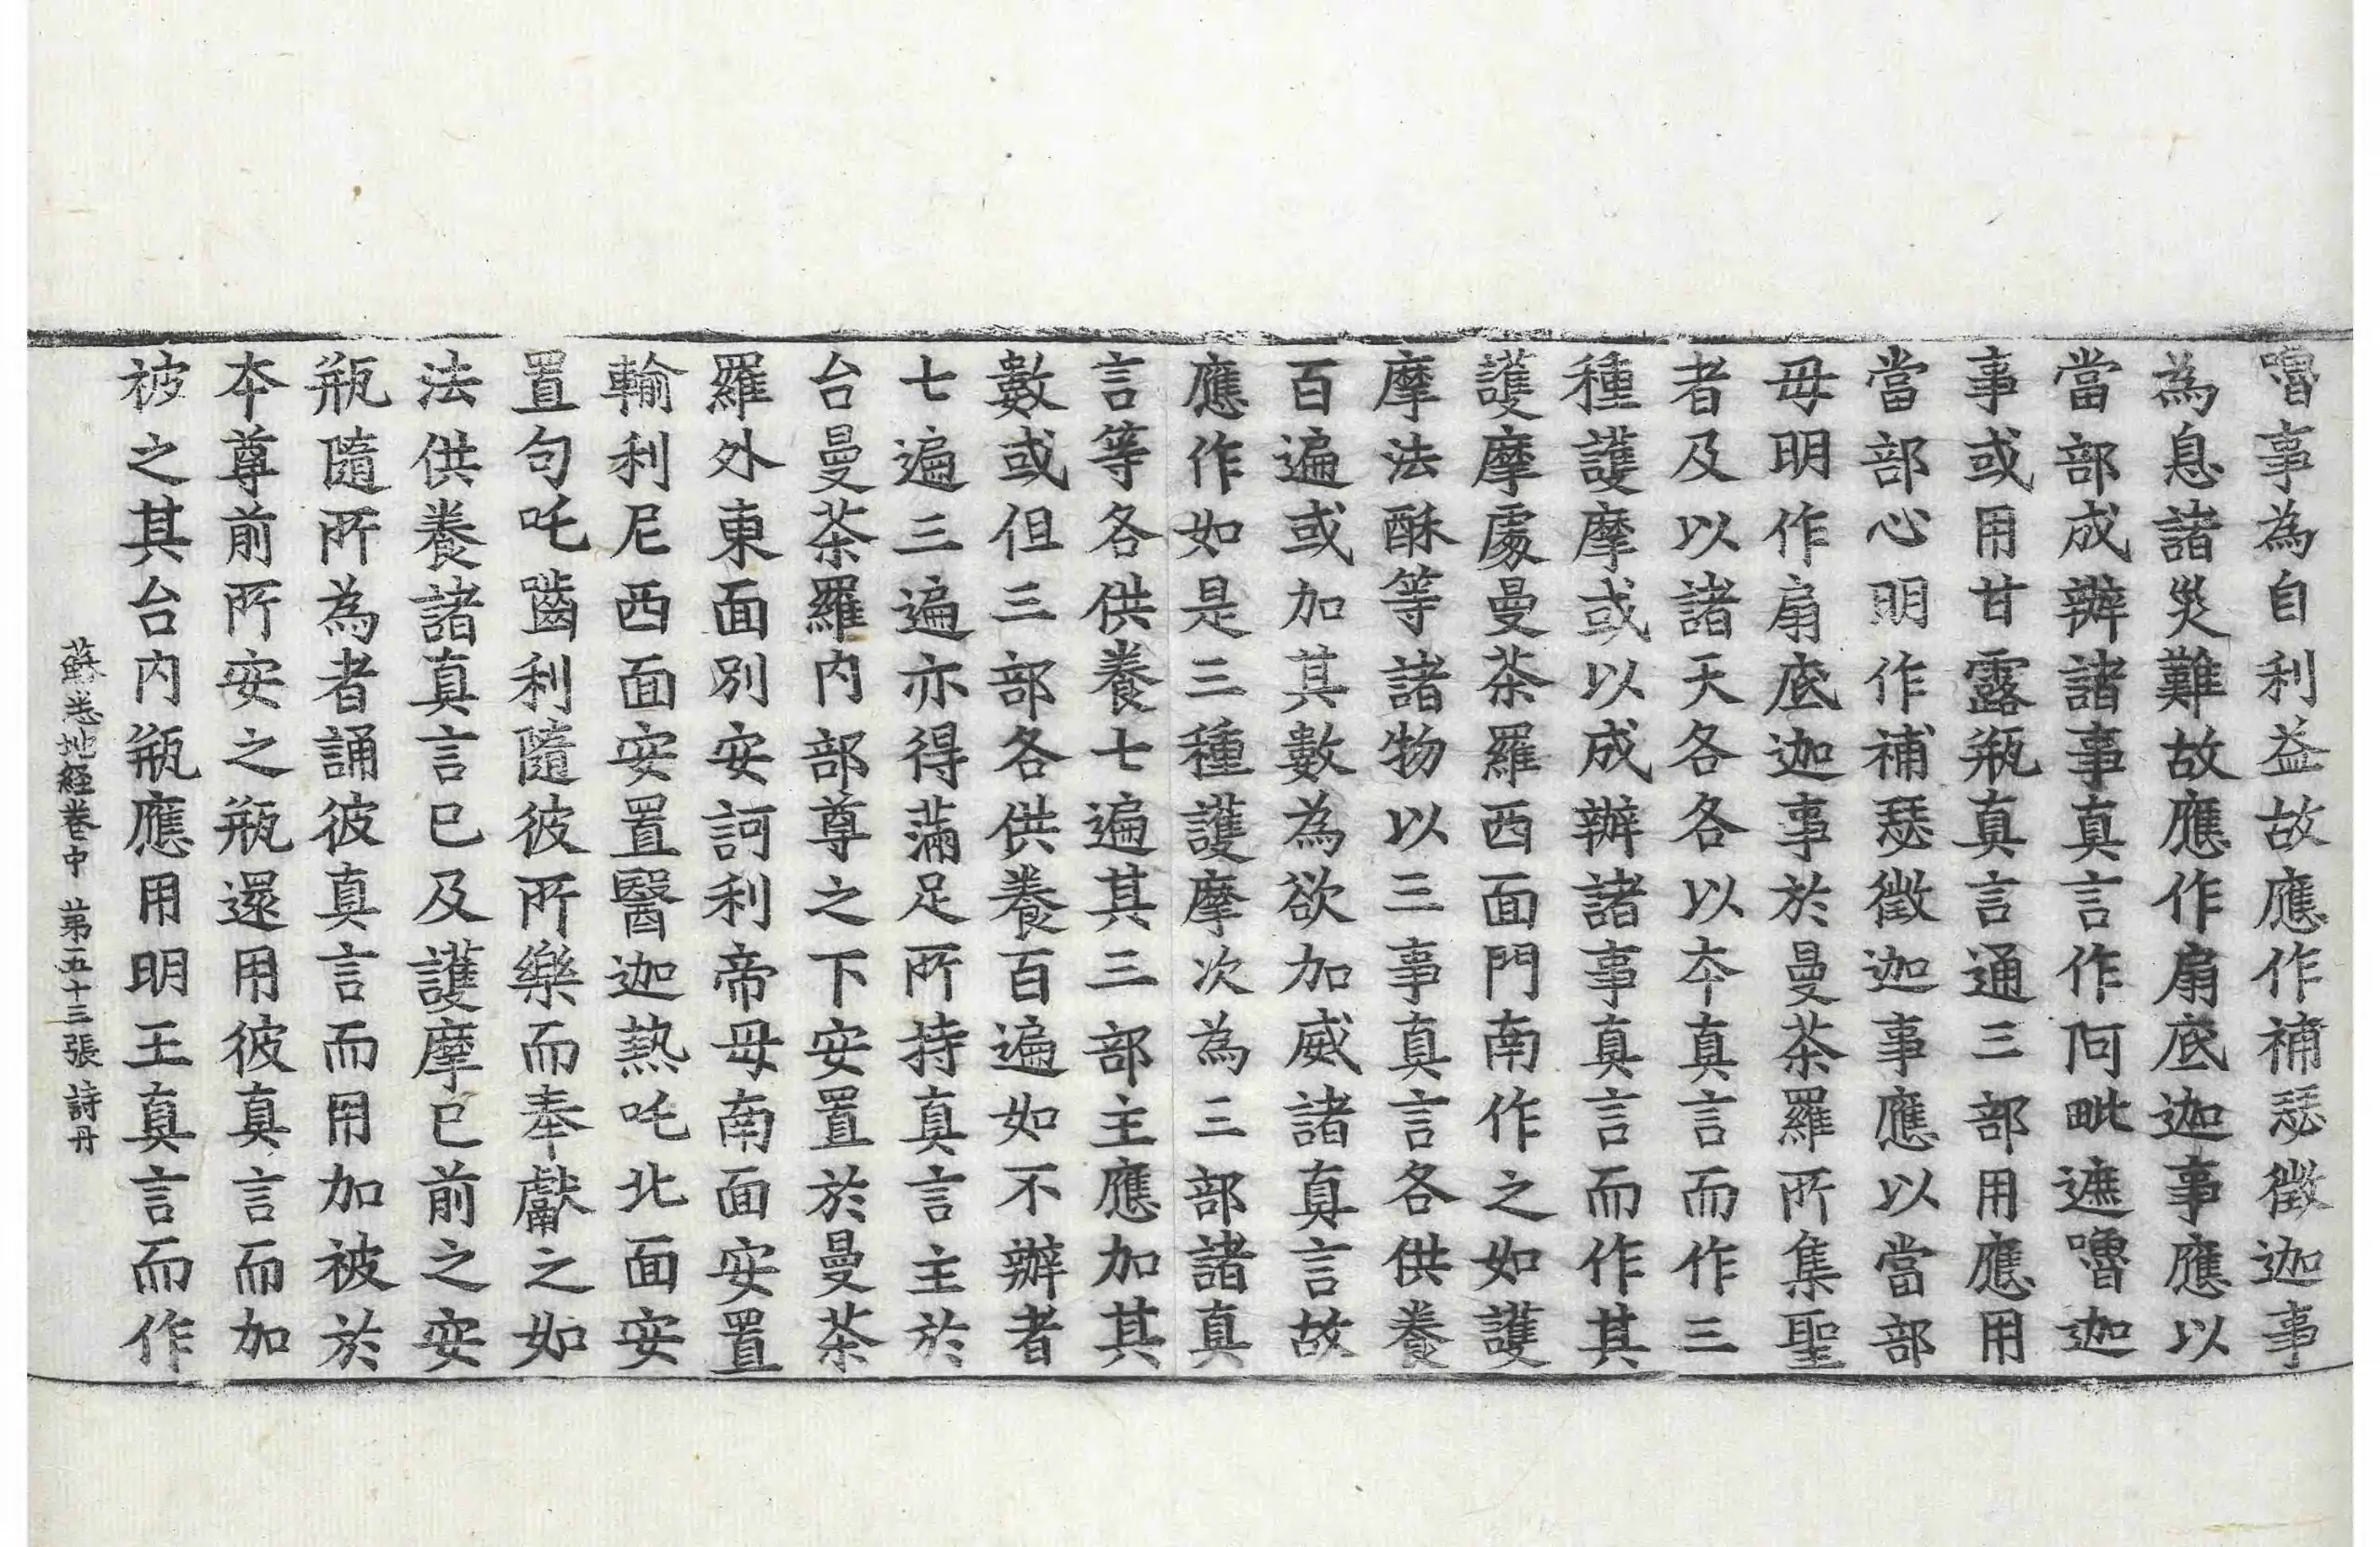 嚕事為自利益故應作補瑟徵迦事
為息諸災難故應作扇底迦事應以
當部成辦諸事真言作阿毗遮嚕迦
事或用甘露瓶真言通三部用應用
當部心明作補瑟徵迦事應以當部
母明作扇底迦事於曼茶羅所集聖
者及以諸天各各以本真言而作三
種護摩或以成辦諸事真言而作其
護摩處曼茶羅西面門南作之如護
摩法酥等諸物以三事真言各供養
百遍或加其數為欲加威諸真言故
應作如是三種護摩次為三部諸真
言等各供養七遍其三部主應加其
數或但三部各供養百遍如不辦者
七遍三遍亦得滿足所持真言主於
台曼茶羅內部尊之下安置於曼茶
羅外東面別安訶利帝母南面安置
輸利尼西面安置醫迦熱吒北面安
置句吒齒利隨彼所樂而奉獻之如
法供養諸真言已及護摩已前之安
瓶隨所為者誦彼真言而用加被於
本尊前所安之瓶還用彼真言而加
被之其台內瓶應用明王真言而作
蘇悉地経卷中 第五十三張 詩丹